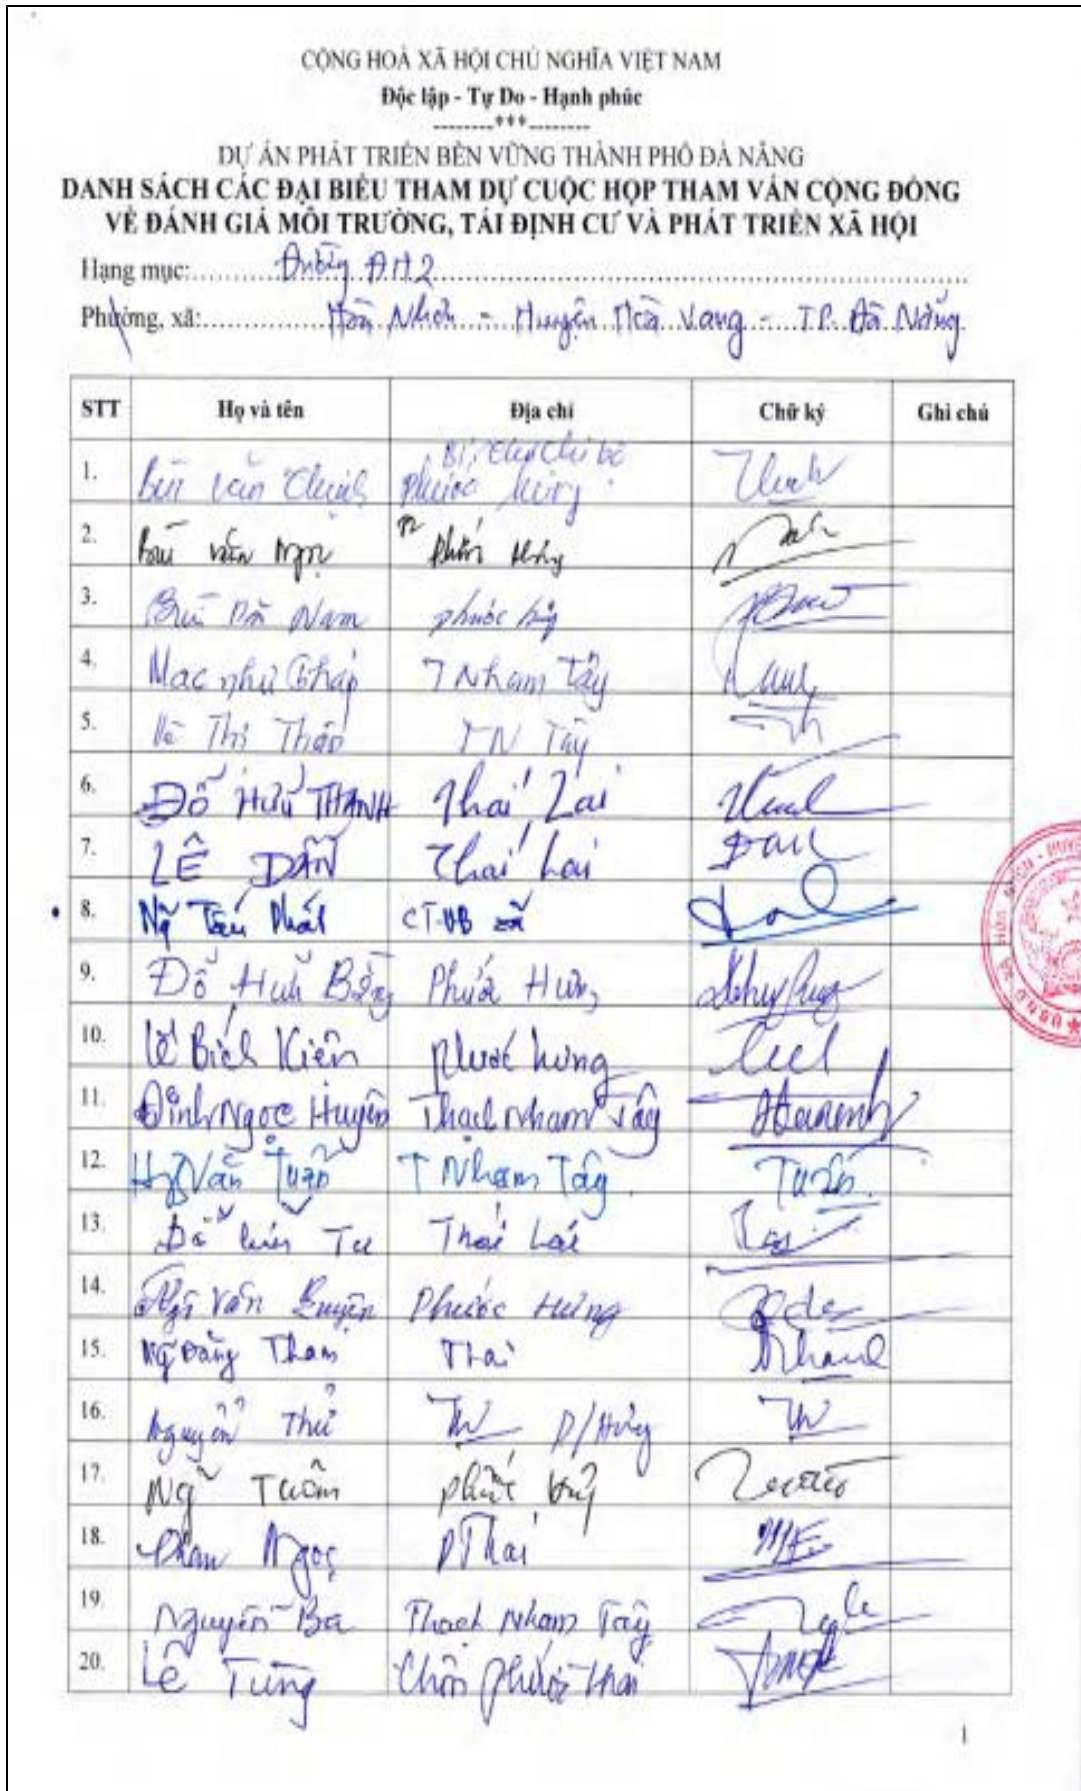 CỘNG HOÀ XÃ HỘI CHỦ NGHĨA VIỆT NAM
Độc lập - Tự Do - Hạnh phúc
--------***--------
DỰ ÁN PHÁT TRIỂN BỀN VỮNG THÀNH PHỐ ĐÀ NẴNG
DANH SÁCH CÁC ĐẠI BIỂU THAM DỰ CUỘC HỌP THAM VẤN CỘNG ĐỒNG
VỀ ĐÁNH GIÁ MÔI TRƯỜNG, TÁI ĐỊNH CƯ VÀ PHÁT TRIỂN XÃ HỘI
Hạng mục: Đường ĐH2
Phường, xã: Hòa Nhơn - Huyện Hòa Vang - TP. Đà Nẵng
STT Họ và tên Địa chỉ Chữ ký Ghi chú
Bí thư Chi bộ
1. Bùi Văn Phước Hưng
2. Bùi Văn Ngọc Phước Hưng
3. Bùi Bá Nam Phước Hưng
4. Mạc Như Tháp T Nham Tây
5. Võ Thị Thảo TN Tây
6. ĐỖ HỮU THANH Thái Lai
7. LÊ DẪN Thái Lai
8. Ng Tấn Phát CT.UB xã
9. Đỗ Hữu Bằng Phước Hưng
10. Lê Bích Kiên Phước Hưng
11. Đinh Ngọc Huyện Thạch Nham Tây
12. Văn Tuấn T Nham Tây Tuấn
13. Đỗ Tư Thái Lai
14. Văn Phước Hưng
15. Ng Đăng Tham Thái
16. Nguyễn Thử P/Hưng
17. Ng Tuấn Phước Hưng
18. Phan Ngọc P Thái
19. Nguyễn Ba Thạch Nham Tây
20. Lê Tùng Thôn Phước Thái
1